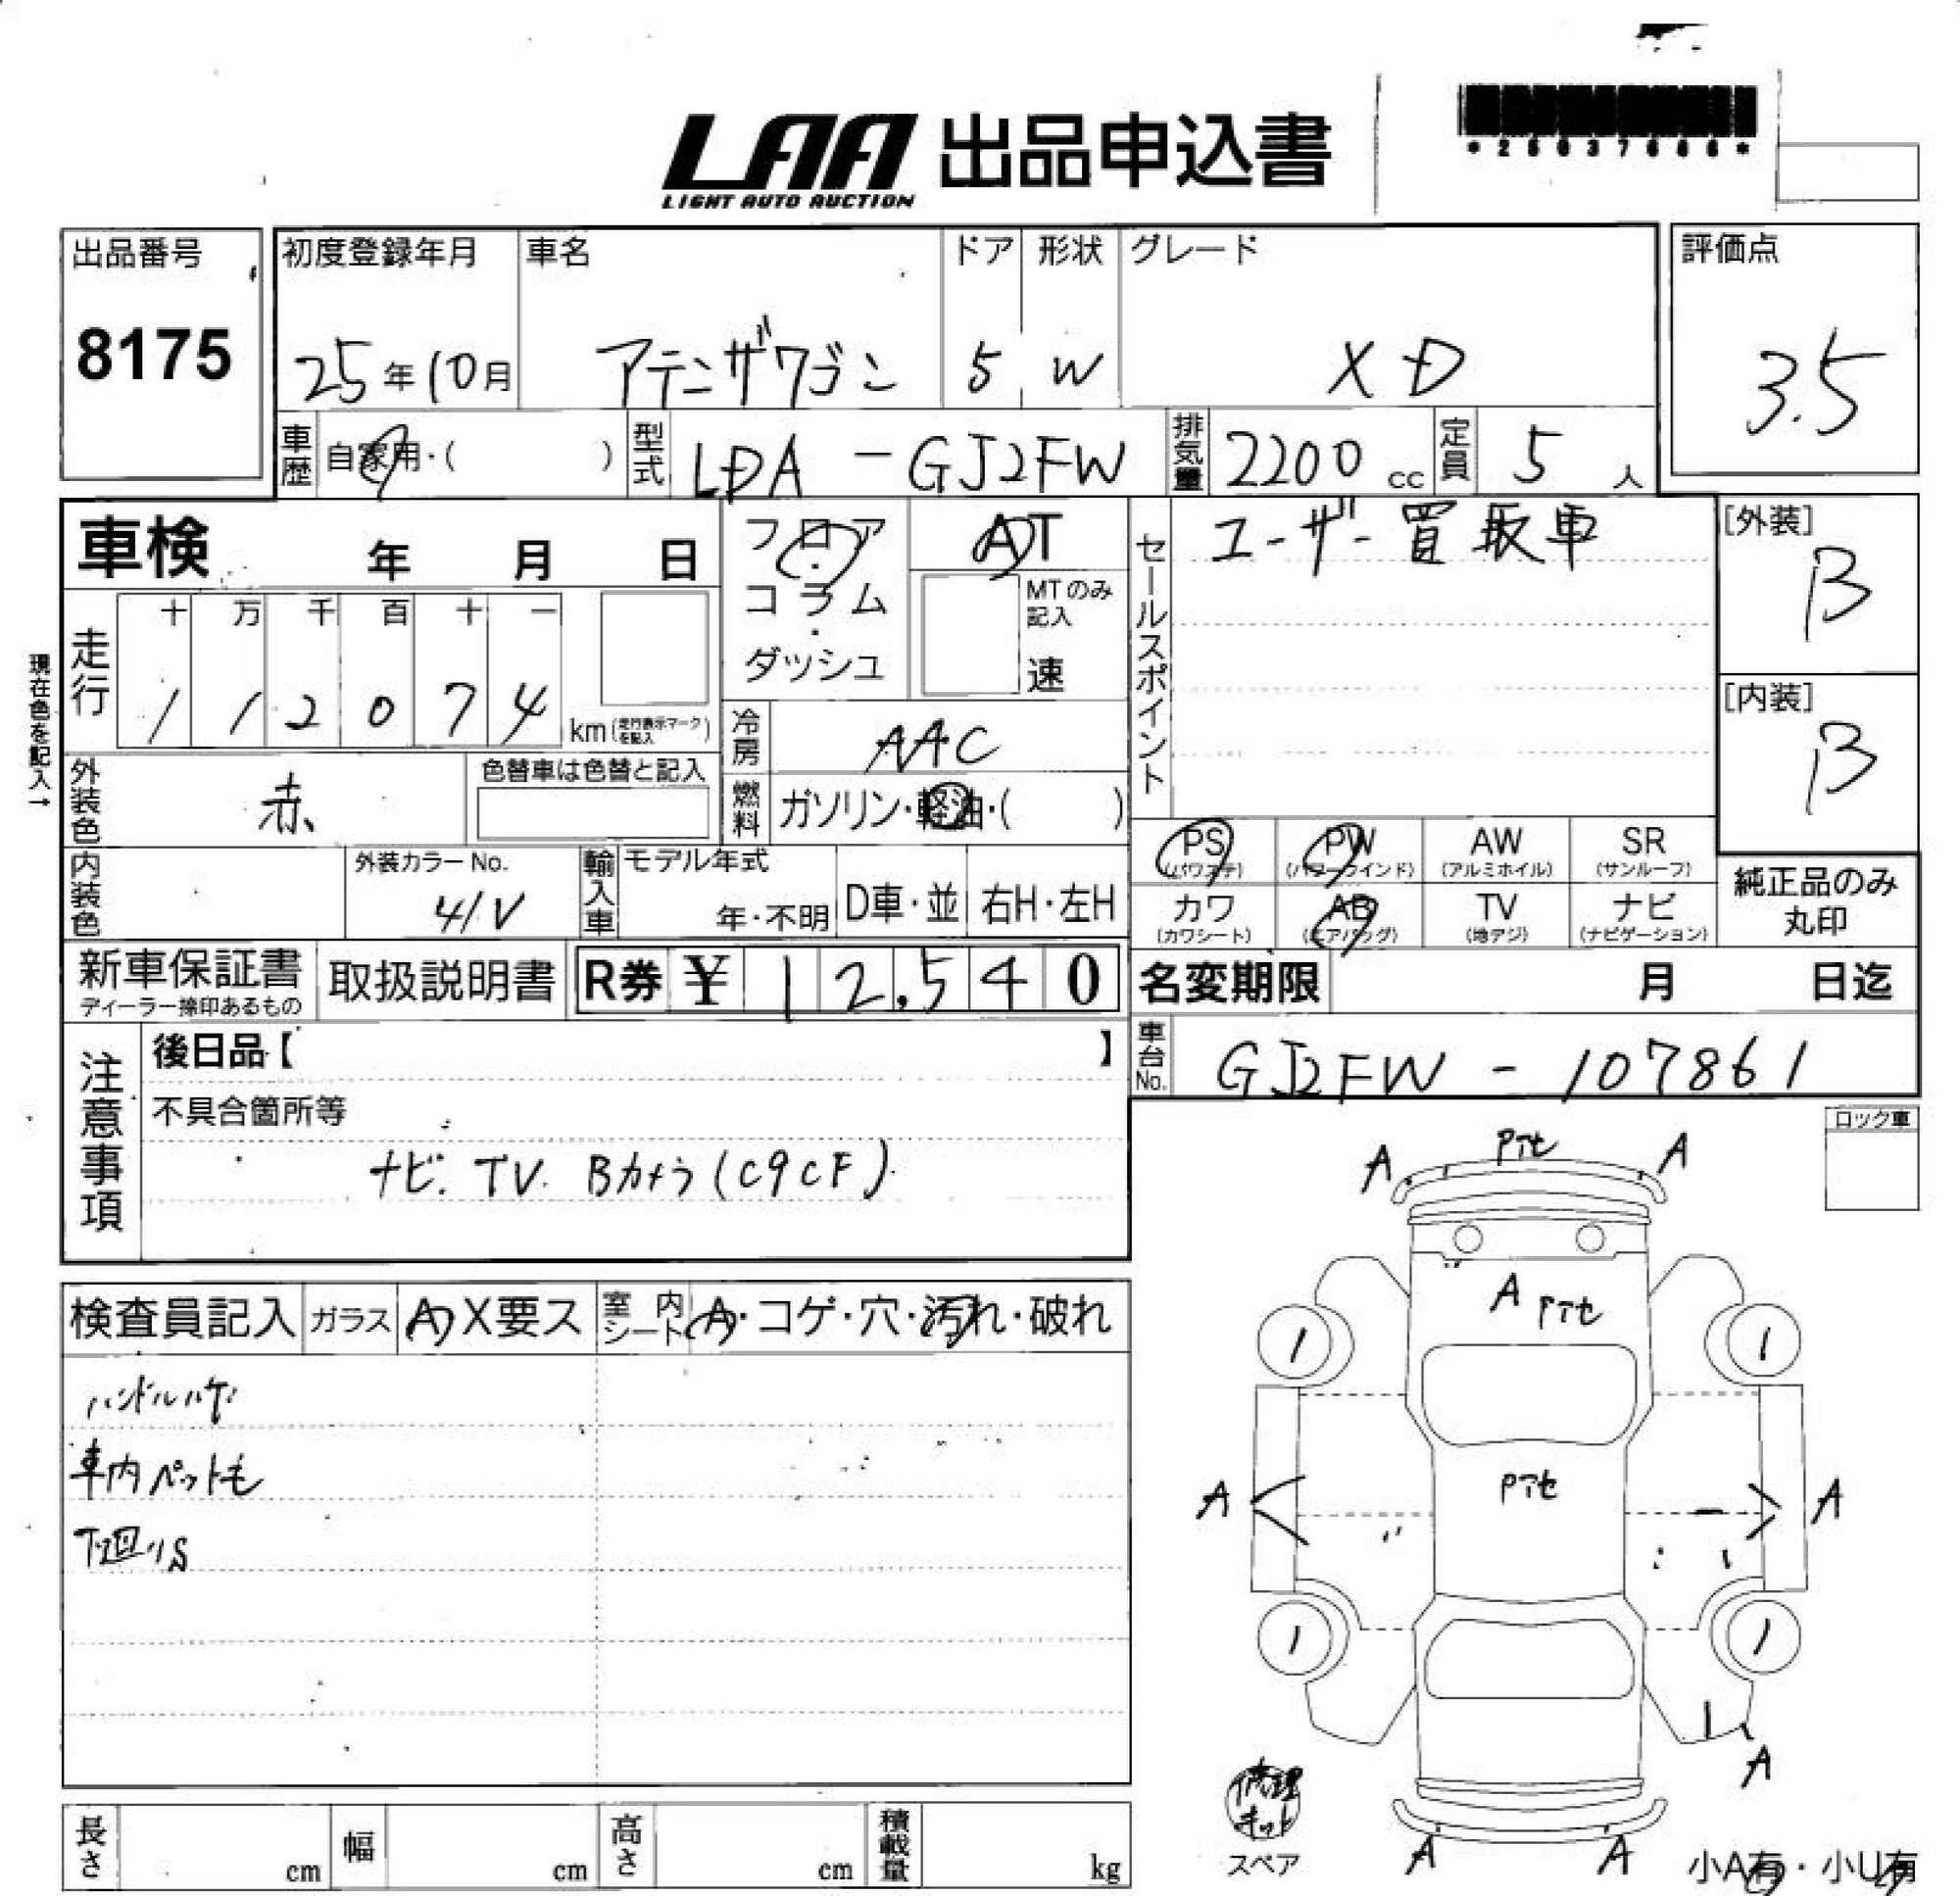 LAA 出品申込書
LIGHT AUTO AUCTION
出品番号
8175
初度登録年月
25年10月
車名
アテンザワゴン
ドア
5
形状
W
グレード
XD
評価点
3.5
車歴
自家用・( )
型式
LDA - GJ2FW
排気量
2200 cc
定員
5 人
車検 年 月 日
フロア・コラム・ダッシュ
AT
MTのみ記入
速
セールスポイント
ユーザー買取車
[外装]
B
[内装]
B
現在色を記入→
走行
十 万 千 百 十 一
1 1 2 0 7 4
km(走行表示マークを記入)
冷房
AAC
外装色
赤
色替車は色替と記入
燃料
ガソリン・軽油・( )
内装色
外装カラーNo.
41V
輸入車
モデル年式
年・不明
D車・並
右H・左H
PS
(パワステ)
PW
(パワーウインド)
AW
(アルミホイル)
SR
(サンルーフ)
カワ
(カワシート)
AB
(エアバッグ)
TV
(地デジ)
ナビ
(ナビゲーション)
純正品のみ
丸印
新車保証書
ディーラー捺印あるもの
取扱説明書
R券 ¥ 12,540
名変期限 月 日迄
車台No.
GJ2FW - 107861
注意事項
後日品【 】
不具合箇所等
ナビ. TV. Bカメラ(C9CF)
ロック車
検査員記入
ガラス
A X要ス
室内シート
A・コゲ・穴・汚れ・破れ
ハンドルハゲ
車内ペット毛
下廻りS
A Pアセ A
A Pアセ
1 1
Pアセ
A A
1 1
A
A A
修理キット
スペア
小A有・小U有
長さ cm
幅 cm
高さ cm
積載量 kg